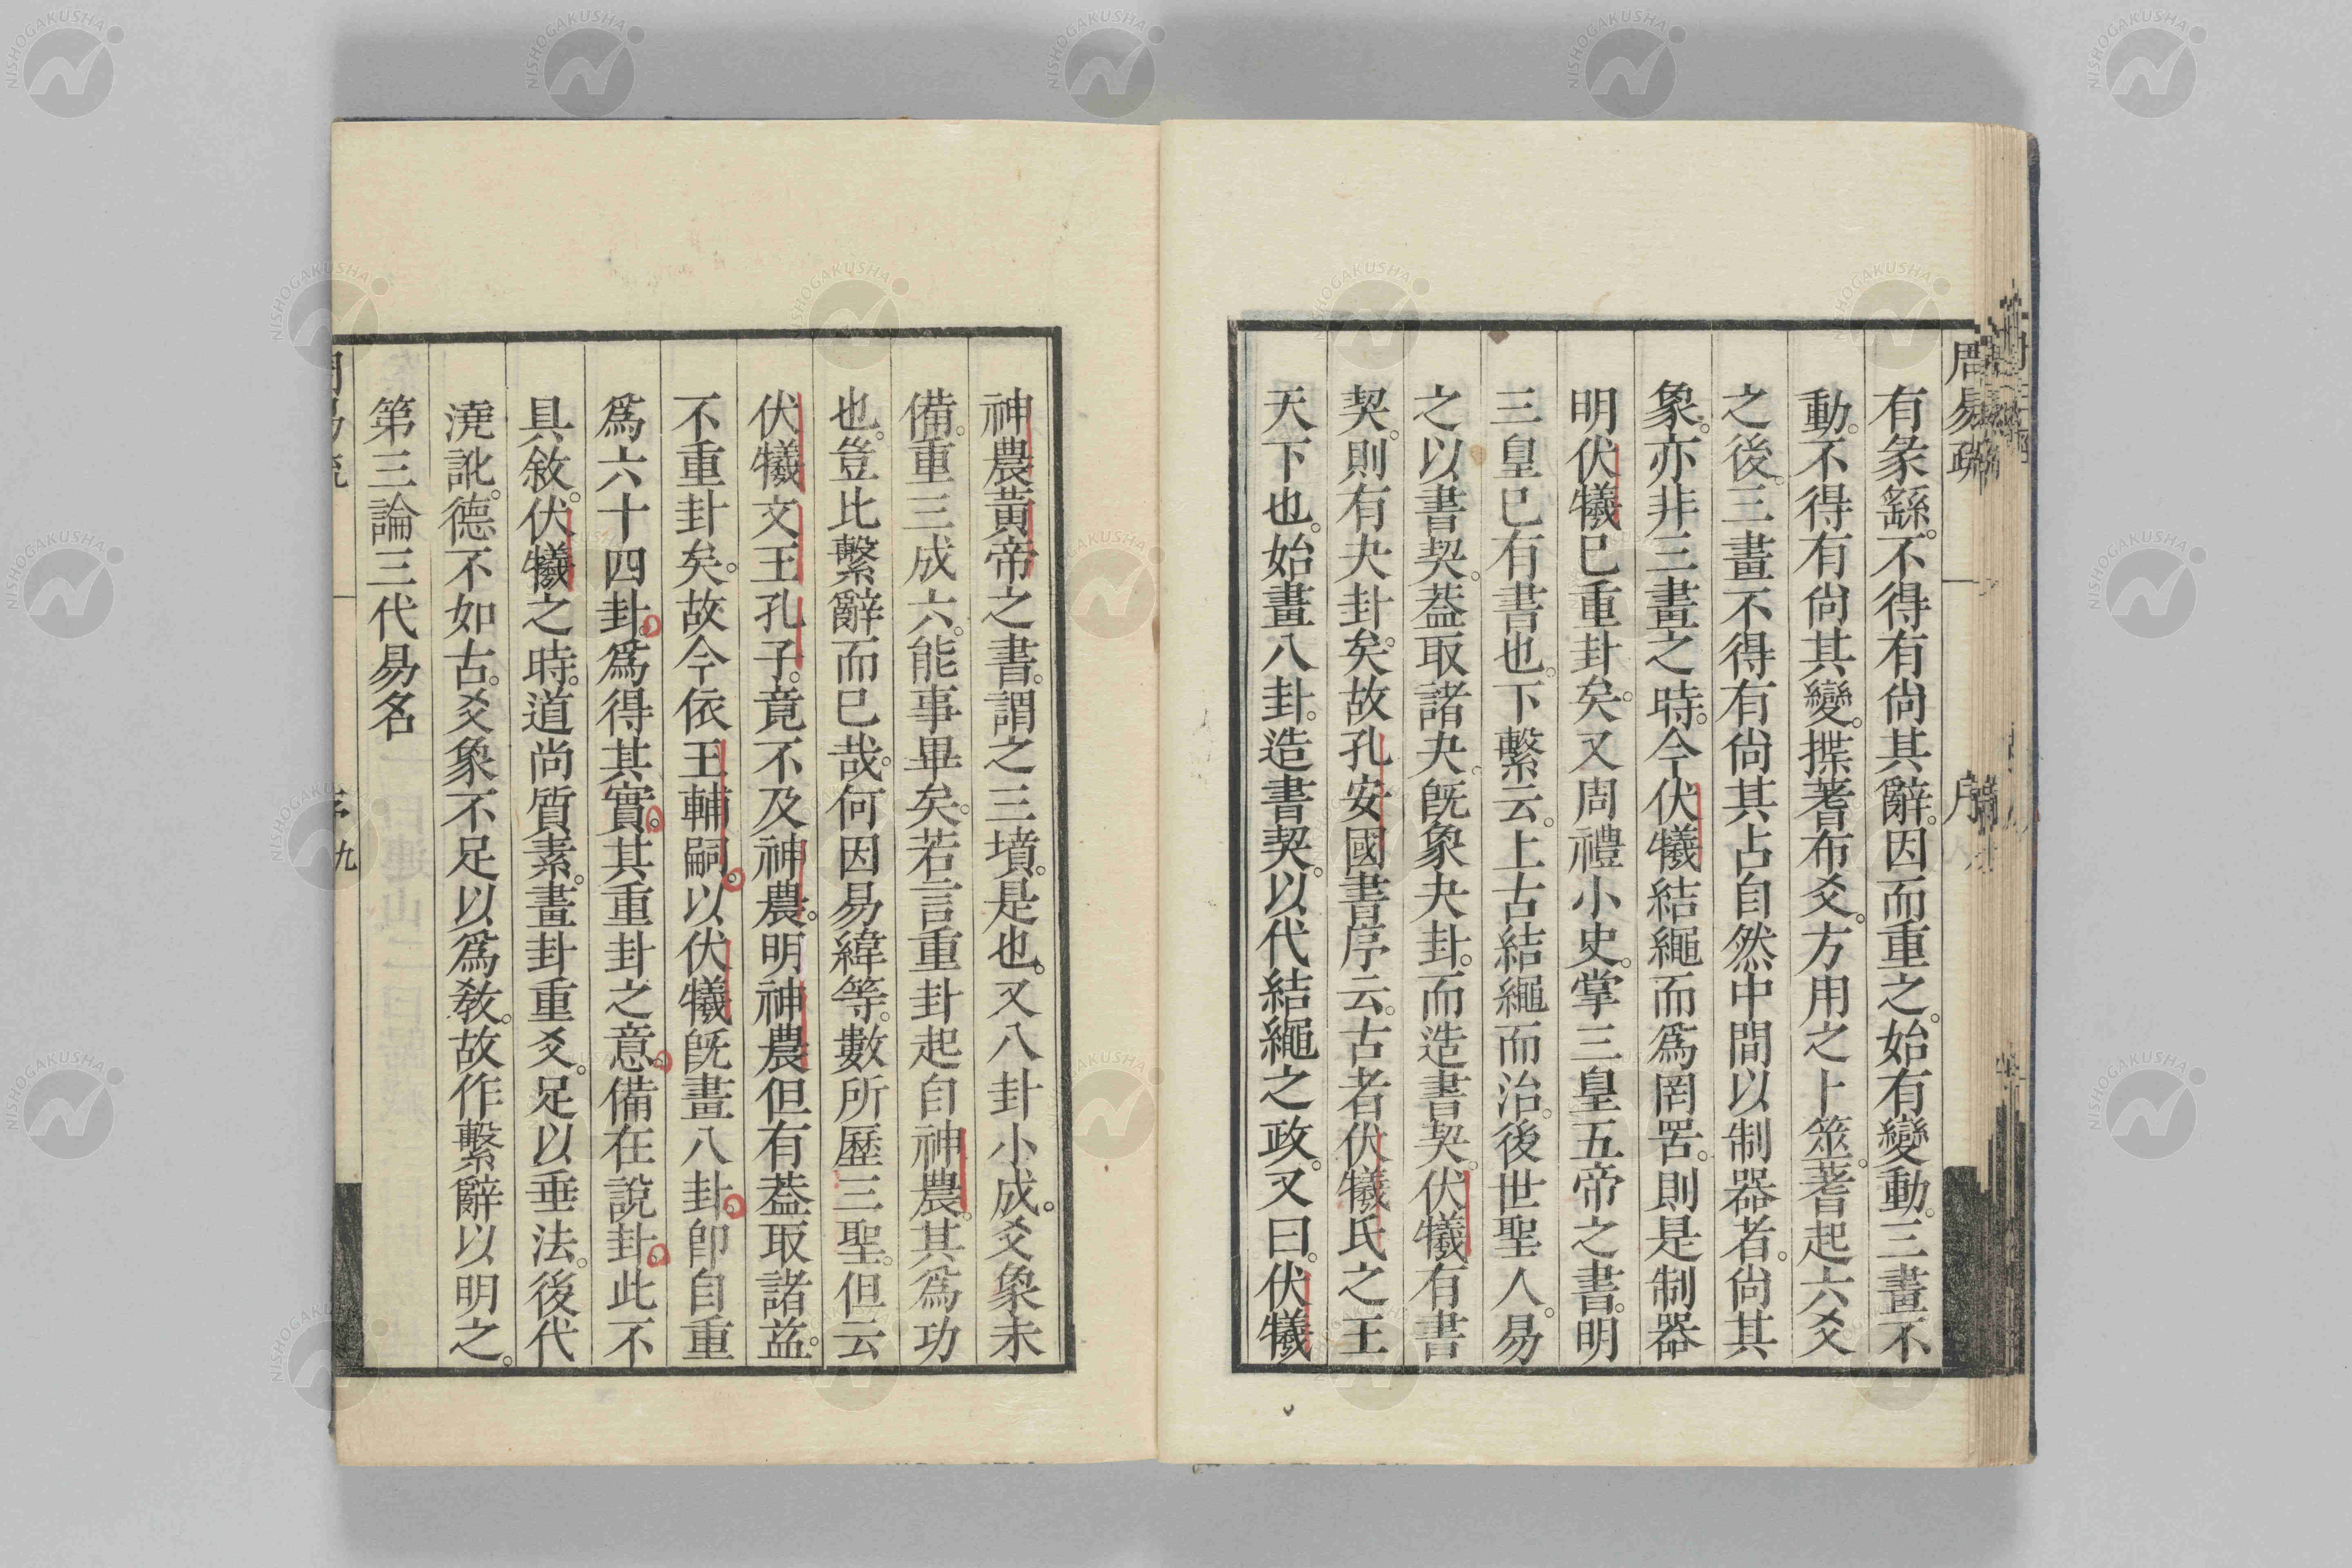 周易疏
序
有彖繇。不得有尙其辭。因而重之。始有變動。三畫不
動。不得有尙其變。揲蓍布爻。方用之卜筮。蓍起六爻
之後。三畫不得有尙其占自然中間以制器者。尙其
象。亦非三畫之時。今伏犧結繩而爲罔罟。則是制器
明伏犧已重卦矣。又周禮小史。掌三皇五帝之書。明
三皇已有書也。下繫云。上古結繩而治。後世聖人。易
之以書契。葢取諸夬。旣象夬卦。而造書契。伏犧有書
契。則有夬卦矣。故孔安國書序云。古者伏犧氏之王
天下也。始畫八卦。造書契。以代結繩之政。又曰。伏犧
神農黃帝之書。謂之三墳。是也。又八卦小成。爻象未
備。重三成六。能事畢矣。若言重卦起自神農。其爲功
也。豈比繫辭而已哉。何因易緯等。數所歷三聖。但云
伏犧文王孔子。竟不及神農。明神農但有葢取諸益。
不重卦矣。故今依王輔嗣。以伏犧旣畫八卦。卽自重
爲六十四卦。爲得其實。其重卦之意。備在說卦。此不
具敘。伏犧之時。道尙質素。畫卦重爻。足以垂法。後代
澆訛。德不如古。爻象不足以爲敎。故作繫辭以明之。
第三論三代易名
序九
NISHOGAKUSHA